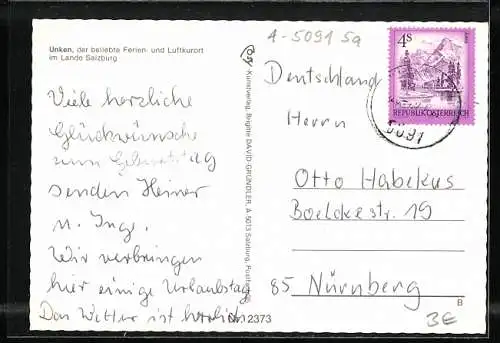 Unken, der beliebte Ferien- und Luftkurort
im Lande Salzburg
Viele herzliche
Glückwünsche
zum Geburtstag
senden Heiner
u. Inge.
Wir verbringen
hier einige Urlaubstag
Das Wetter ist herrlich
Cosy Kunstverlag, Brigitte DAVID-GRÜNDLER, A 5013 Salzburg,
2373
A-5091 5a
4S
REPUBLIK ÖSTERREICH
5091
Deutschland
Herrn
Otto Habekus
Boelckestr. 19
85 Nürnberg
B
3E